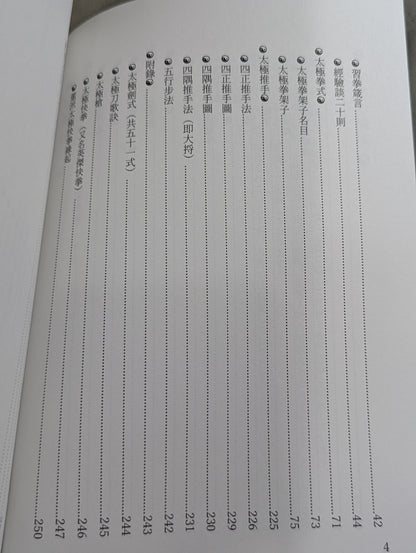 習拳箴言 42
經驗談二十則 44
太極拳式 71
太極拳架子名目 73
太極拳架子 75
太極推手 225
四正推手法 226
四正推手圖 229
四隅推手圖 230
四隅推手法（即大捋） 231
五行步法 242
附錄 243
太極劍式（共五十一式） 244
太極刀歌訣 245
太極槍 246
太極快拳（又名英傑快拳） 247
太極快拳 250
4